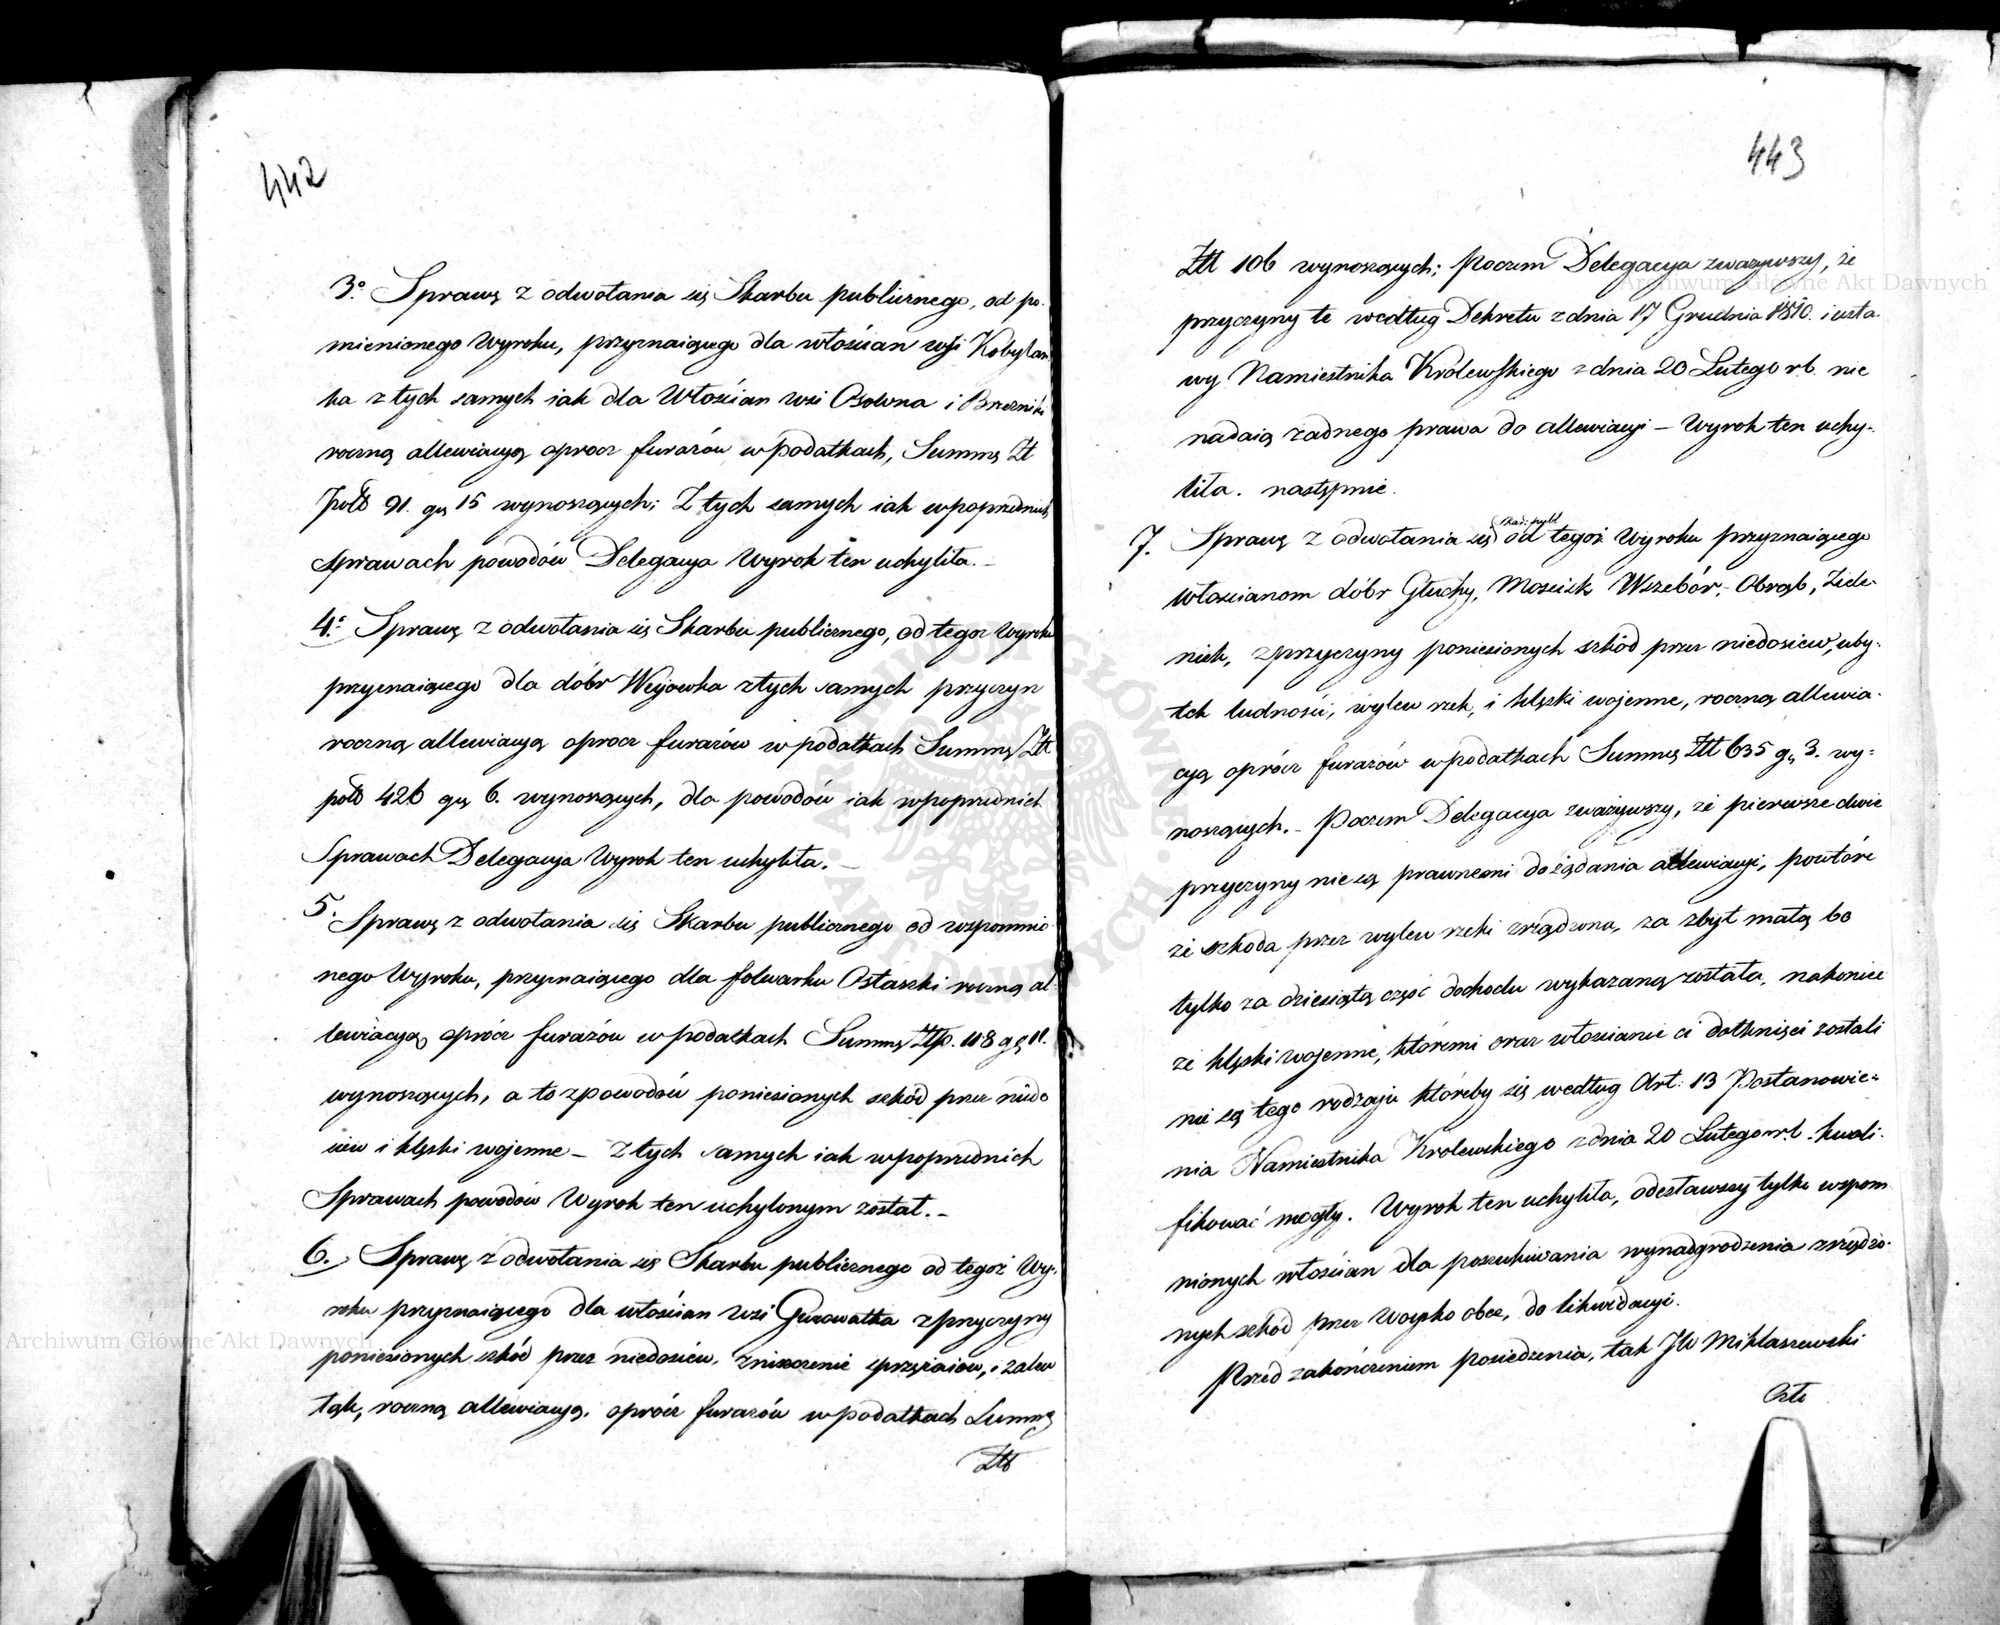 442
3o Sprawę z odwołania się Skarbu publicznego, od po-
mienionego Wyroku, przyznaiącego dla włościan wsi Kobylan
ka z tych samych iak dla Włościan wsi Osowna i Brzeznik
roczną allewiacyą oprocz furażów w podatkach, Summę Zł
Pols 91. gr 15 wynoszących; Z tych samych iak w poprzednich
sprawach powodów Delegacya Wyrok ten uchyliła. –
4o Sprawę z odwołania się Skarbu publicznego, od tegoz Wyroku
przyznaiącego dla dóbr Weyowka z tych samych przyczyn
roczną allewiacyą oprocz furazów w podatkach Summę Złt
pols 426 gr 6. wynoszących, dla powodów iak w poprzednich
Sprawach Delegacya Wyrok ten uchyliła. –
5. Sprawę z odwołania się Skarbu publicznego od wspomnio-
nego Wyroku, przyznaiącego dla folwarku Ostaszki roczną al-
lewiacyą oprócz furazów w podatkach Summę Złp. 118 gr 11.
wynoszących, a to z powodów poniesionych szkód przez niedo
siew i klęski wojenne – z tych samych iak w poprzednich
Sprawach powodów Wyrok ten uchylonym został. –
6. Sprawę z odwołania się Skarbu publicznego od tegoż Wy-
roku przyznaiącego dla włościan wsi Gurowatka z przyczyny
poniesionych szkód przez niedosiew, zniszczenie sprzężaiow, i zalew
łąk, roczną allewiacyą, oprócz furazów w podatkach Summę
Złt
443
Złt 106 wynoszących; poczem Delegacya zważywszy, że
przyczyny te według Dekretu z dnia 17 Grudnia 1810. i usta-
wy Namiestnika Królewskiego z dnia 20 Lutego r.b. nie
nadaią żadnego prawa do allewiacyi – Wyrok ten uchy-
liła. następnie.
7. Sprawę z odwołania się Skar: publ od tegoż Wyroku przyznaiącego
włościanom dóbr Głuchy, Mościsk Wszebór, Obrąb, Zide-
niek, z przyczyny poniesionych szkód przez niedosiew, uby-
tek ludności, wylew rzek, i klęski wojenne, roczną allewia-
cyą oprócz furazów w podatkach Summę Złt 635 gr 3. wy-
noszących. – Poczem Delegacya zważywszy, że pierwsze dwie
przyczyny nie są prawnemi do żądania allewiacyi, powtóre
że szkoda przez wylew rzeki zrządzona, za zbyt małą bo
tylko za dziesiątą część dochodu wykazaną została, nakoniec
że klęski wojenne, któremi oraz włościanie ci dotknięci zostali
nie są tego rodzaju któreby się według Art: 13 Postanowie-
nia Namiestnika Krolewskiego z dnia 20 Lutego r.b. kwali-
fikować mogły. Wyrok ten uchyliła, odesławszy tylko wspom-
nionych włościan dla poszukiwania wynadgrodzenia zrządzo-
nych szkód przez Woysko obce, do likwidacyi.
Przed zakończeniem posiedzenia, tak JW Miklaszewski
Archiwum Główne Akt Dawnych
Archiwum Główne Akt Dawnych
ARCHIWUM GŁÓWNE AKT DAWNYCH